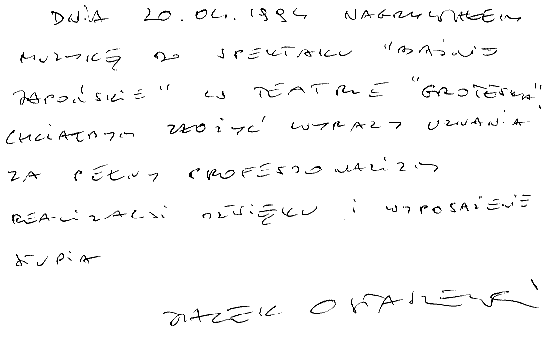 DNIA 20.04.1994 NAGRYWAŁEM
MUZYKĘ DO SPEKTAKLU "BAŚNIE
JAPOŃSKIE" W TEATRZE "GROTESKA".
CHCIAŁBYM ZŁOŻYĆ WYRAZY UZNANIA
ZA PEŁNY PROFESJONALIZM
REALIZACJI DŹWIĘKU I WYPOSAŻENIE
STUDIA
JACEK OSTASZEWSKI